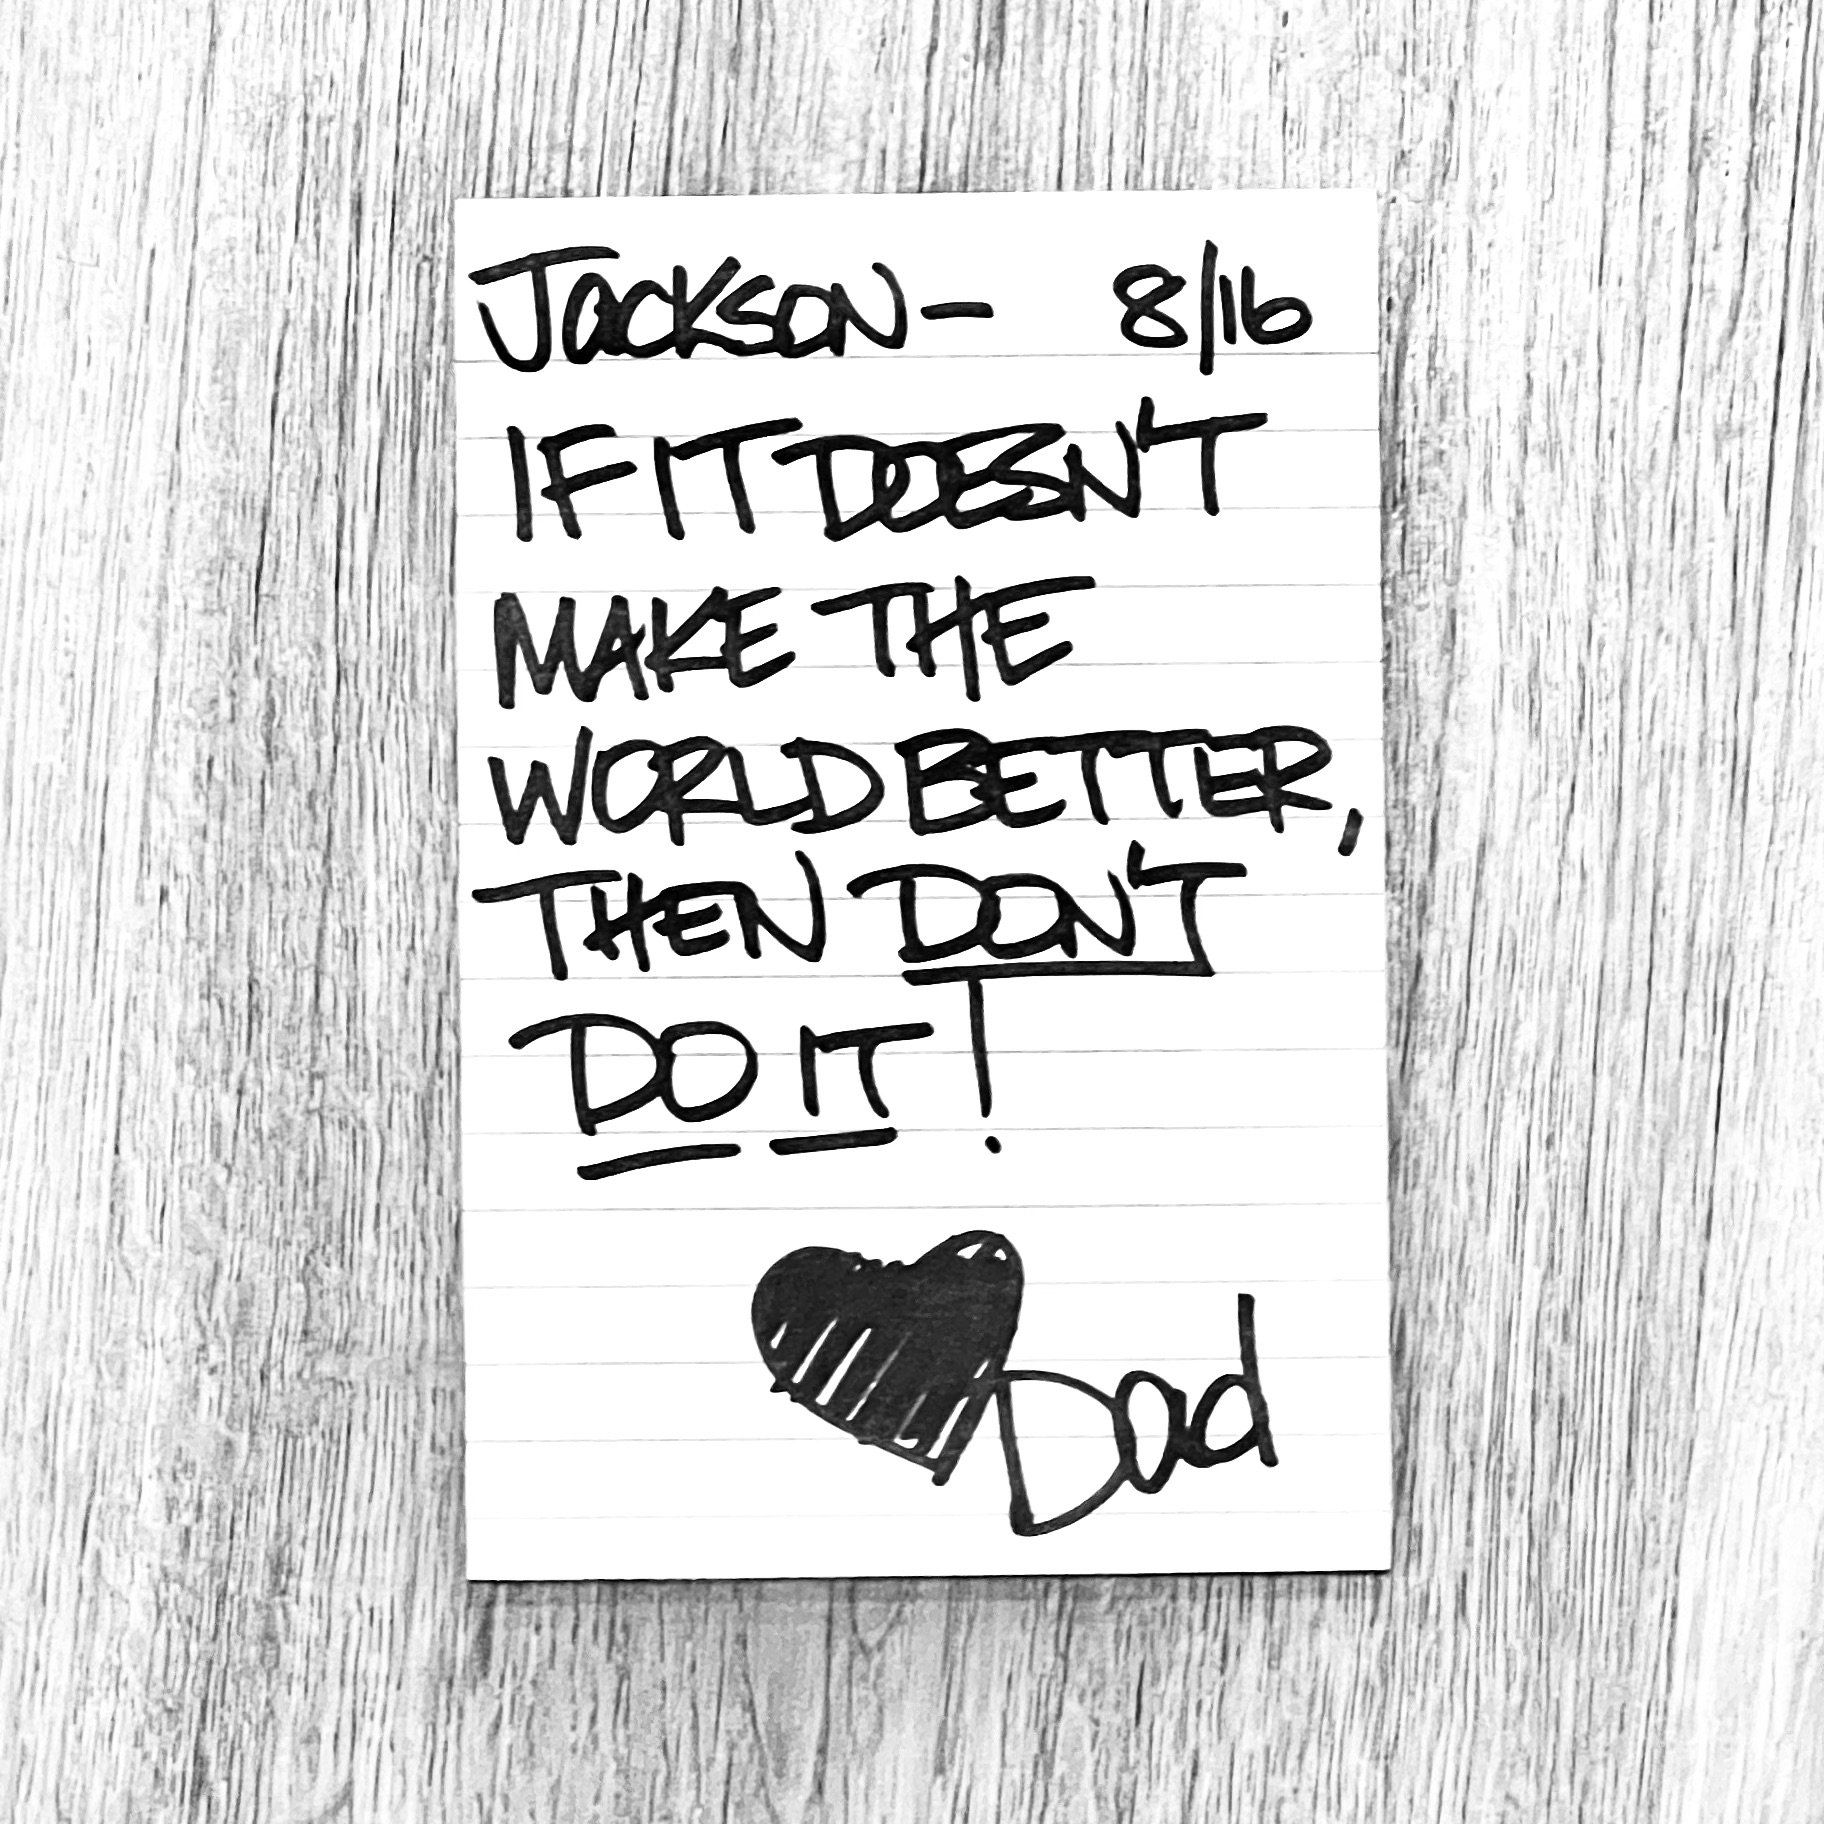 Jackson- 8/16
IF IT DOESN'T
MAKE THE
WORLD BETTER,
THEN DON'T
DO IT!
Dad